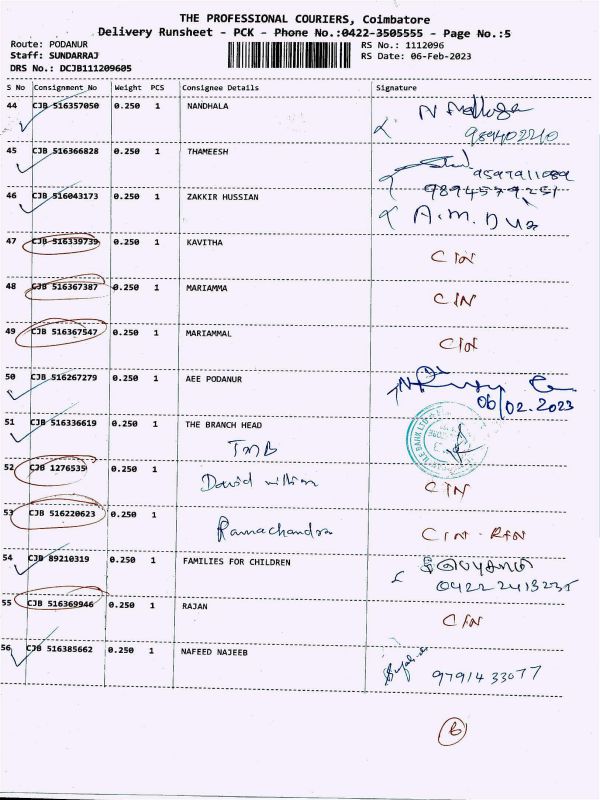 THE PROFESSIONAL COURIERS, Coimbatore
Delivery Runsheet - PCK - Phone No.:0422-3505555 - Page No.:5
Route: PODANUR RS No.: 1112096
Staff: SUNDARRAJ RS Date: 06-Feb-2023
DRS No.: DCJB111209605
S No Consignment No Weight PCS Consignee Details Signature
44 CJB 516357050 0.250 1 NANDHALA
989402210
45 CJB 516366828 0.250 1 THAMEESH
9597911089
46 CJB 516043173 0.250 1 ZAKKIR HUSSIAN 9894579251
A.M.
47 CJB 516339739 0.250 1 KAVITHA CIN
48 CJB 516367387 0.250 1 MARIAMMA CIN
49 CJB 516367547 0.250 1 MARIAMMAL CIN
50 CJB 516267279 0.250 1 AEE PODANUR
06/02.2023
51 CJB 516336619 0.250 1 THE BRANCH HEAD
TMB
52 CJB 1276535 0.250 1 David william CIN
53 CJB 516220623 0.250 1 Ramachandra CIN - RFN
54 CJB 89210319 0.250 1 FAMILIES FOR CHILDREN
0422 2413235
55 CJB 516369946 0.250 1 RAJAN CIN
56 CJB 516385662 0.250 1 NAFEED NAJEEB
9791433077
6